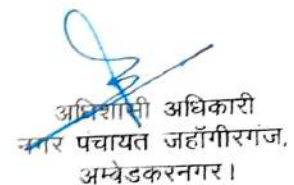 अधिशासी अधिकारी
नगर पंचायत जहॉगीरगंज,
अम्बेडकरनगर।